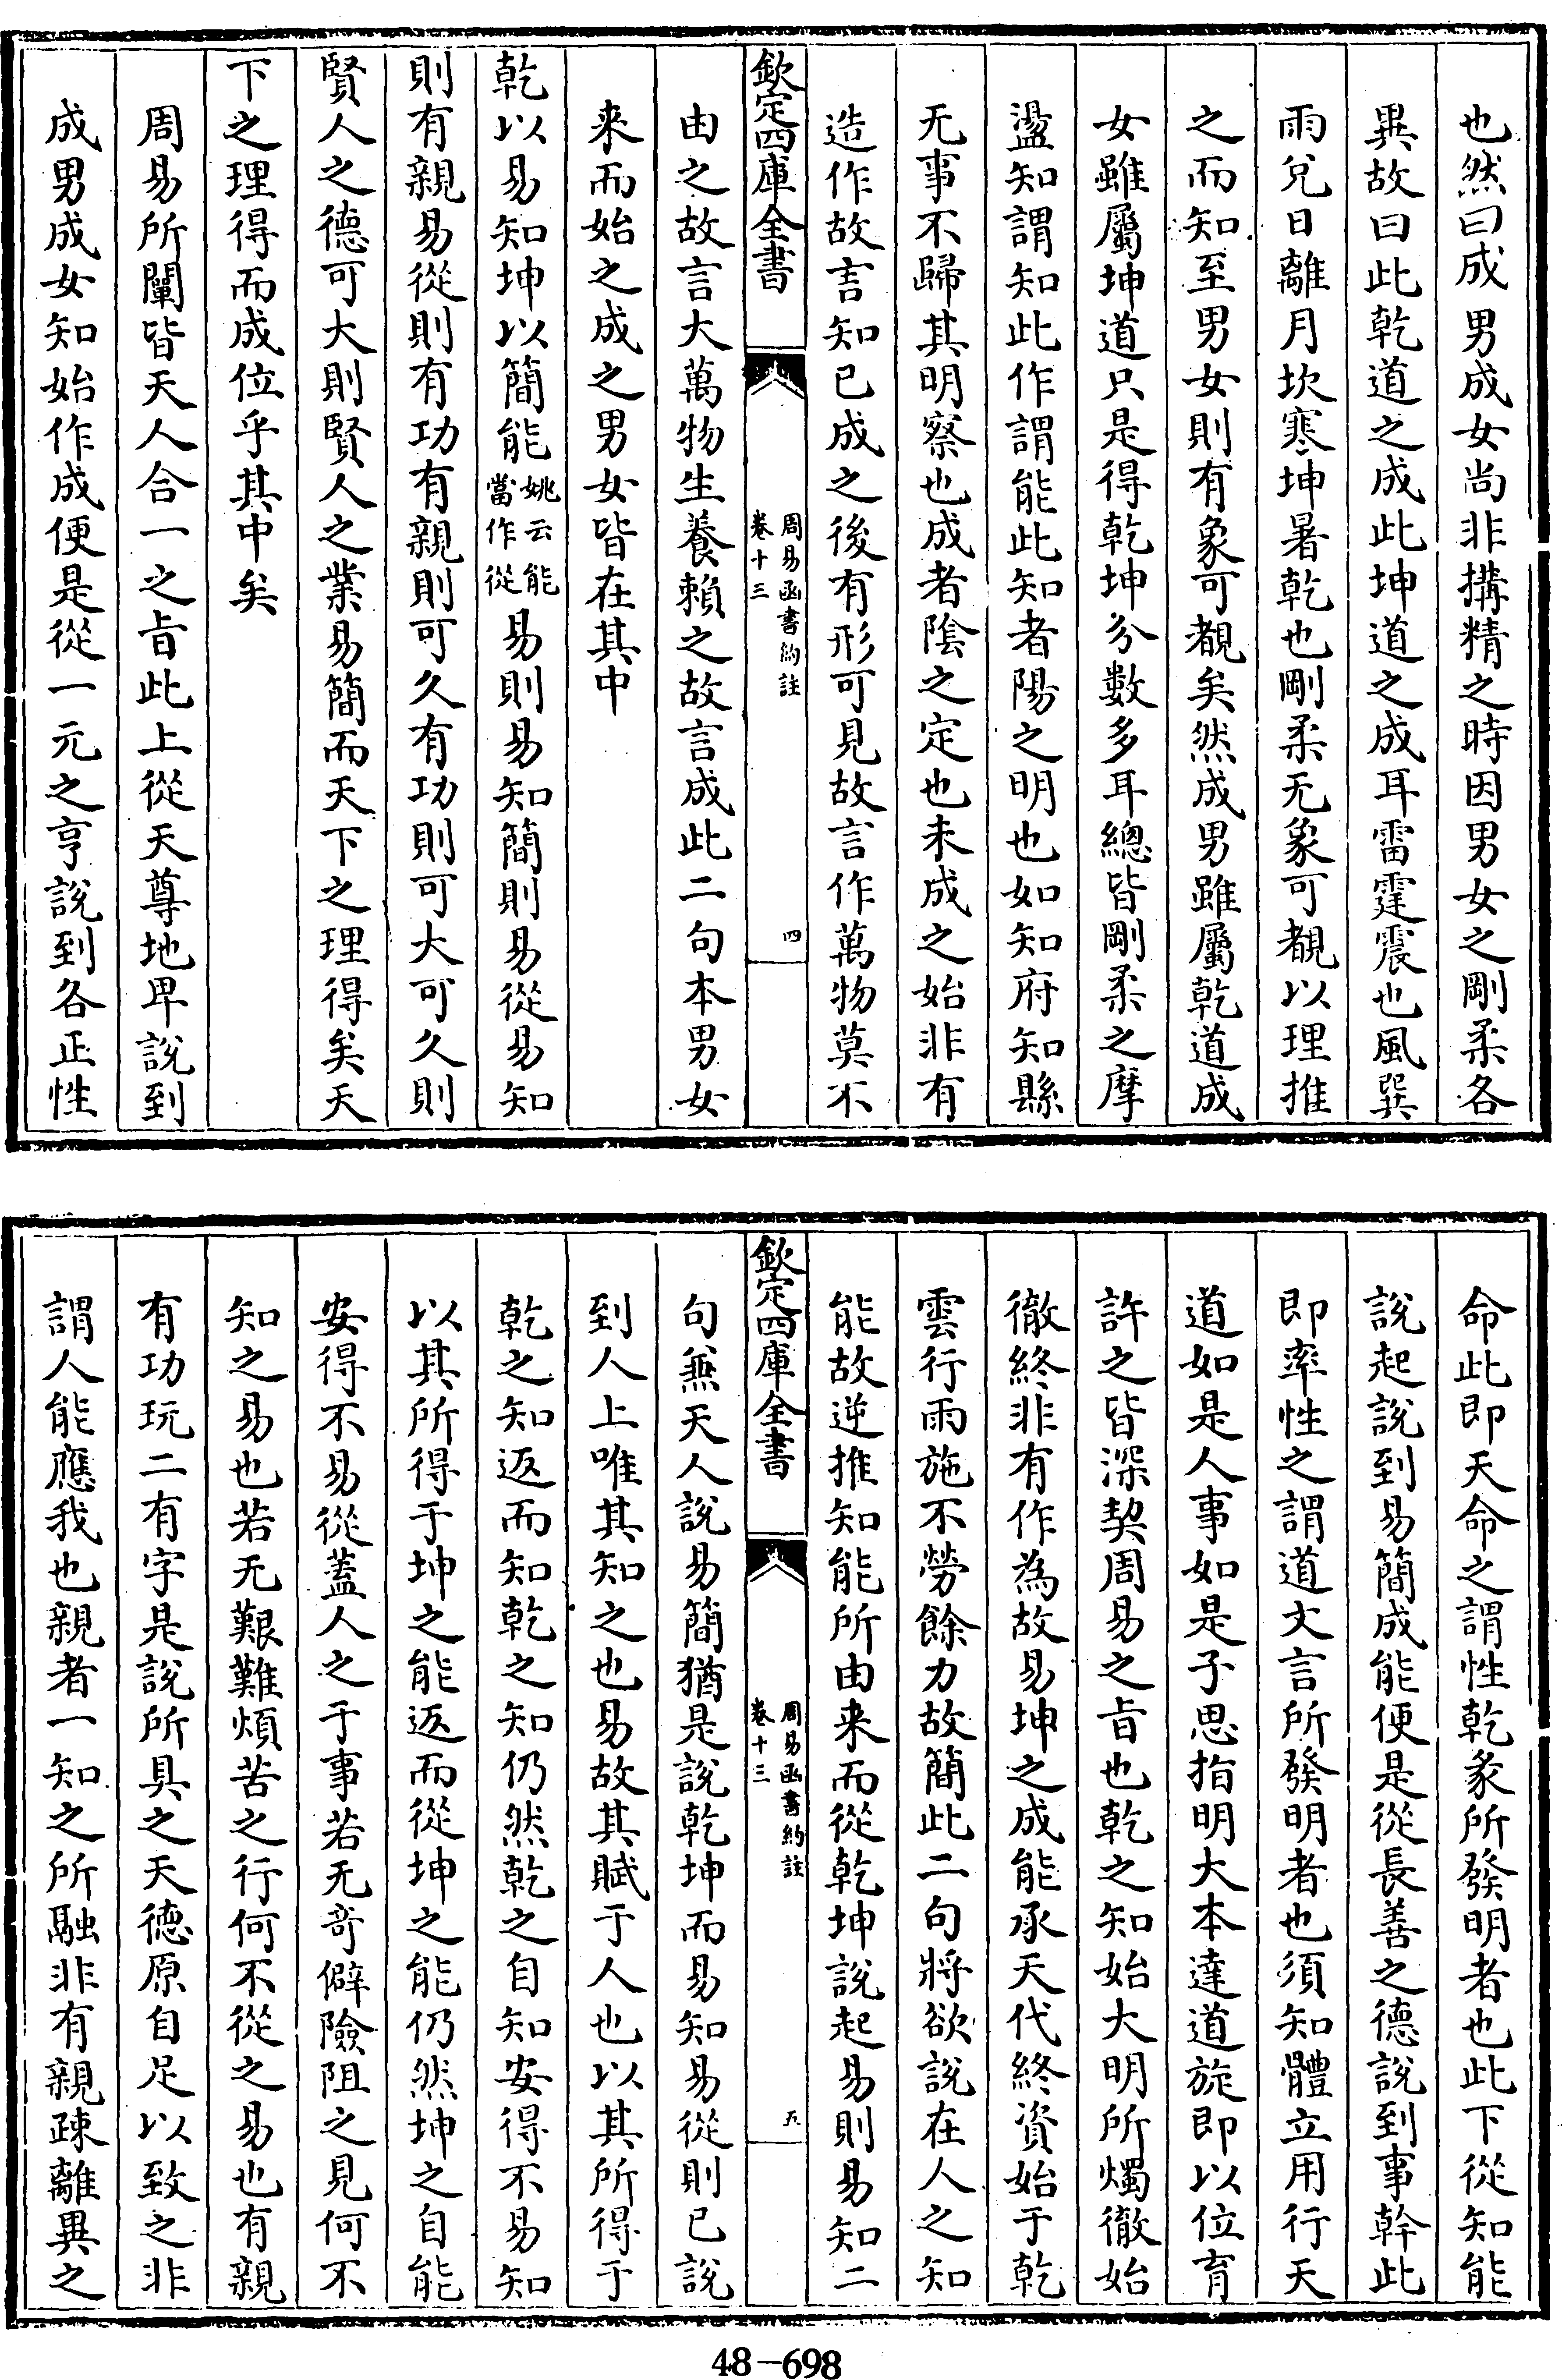 也然曰成男成女尚非搆精之時因男女之剛柔各
異故曰此乾道之成此坤道之成耳雷霆震也風巽
雨兌日離月坎寒坤暑乾也剛柔无象可覩以理推
之而知至男女則有象可覩矣然成男雖屬乾道成
女雖屬坤道只是得乾坤分數多耳總皆剛柔之摩
盪知謂知此作謂能此知者陽之明也如知府知縣
无事不歸其明察也成者陰之定也未成之始非有
造作故言知已成之後有形可見故言作萬物莫不
欽定四庫全書
周易函書約註
卷十三
四
由之故言大萬物生養賴之故言成此二句本男女
来而始之成之男女皆在其中
乾以易知坤以簡能姚云能當作從易則易知簡則易從易知
則有親易從則有功有親則可久有功則可大可久則
賢人之德可大則賢人之業易簡而天下之理得矣天
下之理得而成位乎其中矣
周易所闡皆天人合一之旨此上從天尊地卑說到
成男成女知始作成便是從一元之亨說到各正性
命此即天命之謂性乾彖所發明者也此下從知能
說起說到易簡成能便是從長善之德說到事幹此
即率性之謂道文言所發明者也須知體立用行天
道如是人事如是子思指明大本達道旋即以位育
許之皆深契周易之旨也乾之知始大明所燭徹始
徹終非有作為故易坤之成能承天代終資始于乾
雲行雨施不勞餘力故簡此二句將欲說在人之知
能故逆推知能所由来而從乾坤說起易則易知二
欽定四庫全書
周易函書約註
卷十三
五
句兼天人說易簡猶是說乾坤而易知易從則已說
到人上唯其知之也易故其賦于人也以其所得于
乾之知返而知乾之知仍然乾之自知安得不易知
以其所得于坤之能返而從坤之能仍然坤之自能
安得不易從蓋人之于事若无奇僻險阻之見何不
知之易也若无艱難煩苦之行何不從之易也有親
有功玩二有字是說所具之天德原自足以致之非
謂人能應我也親者一知之所融非有親疎離異之
48-698